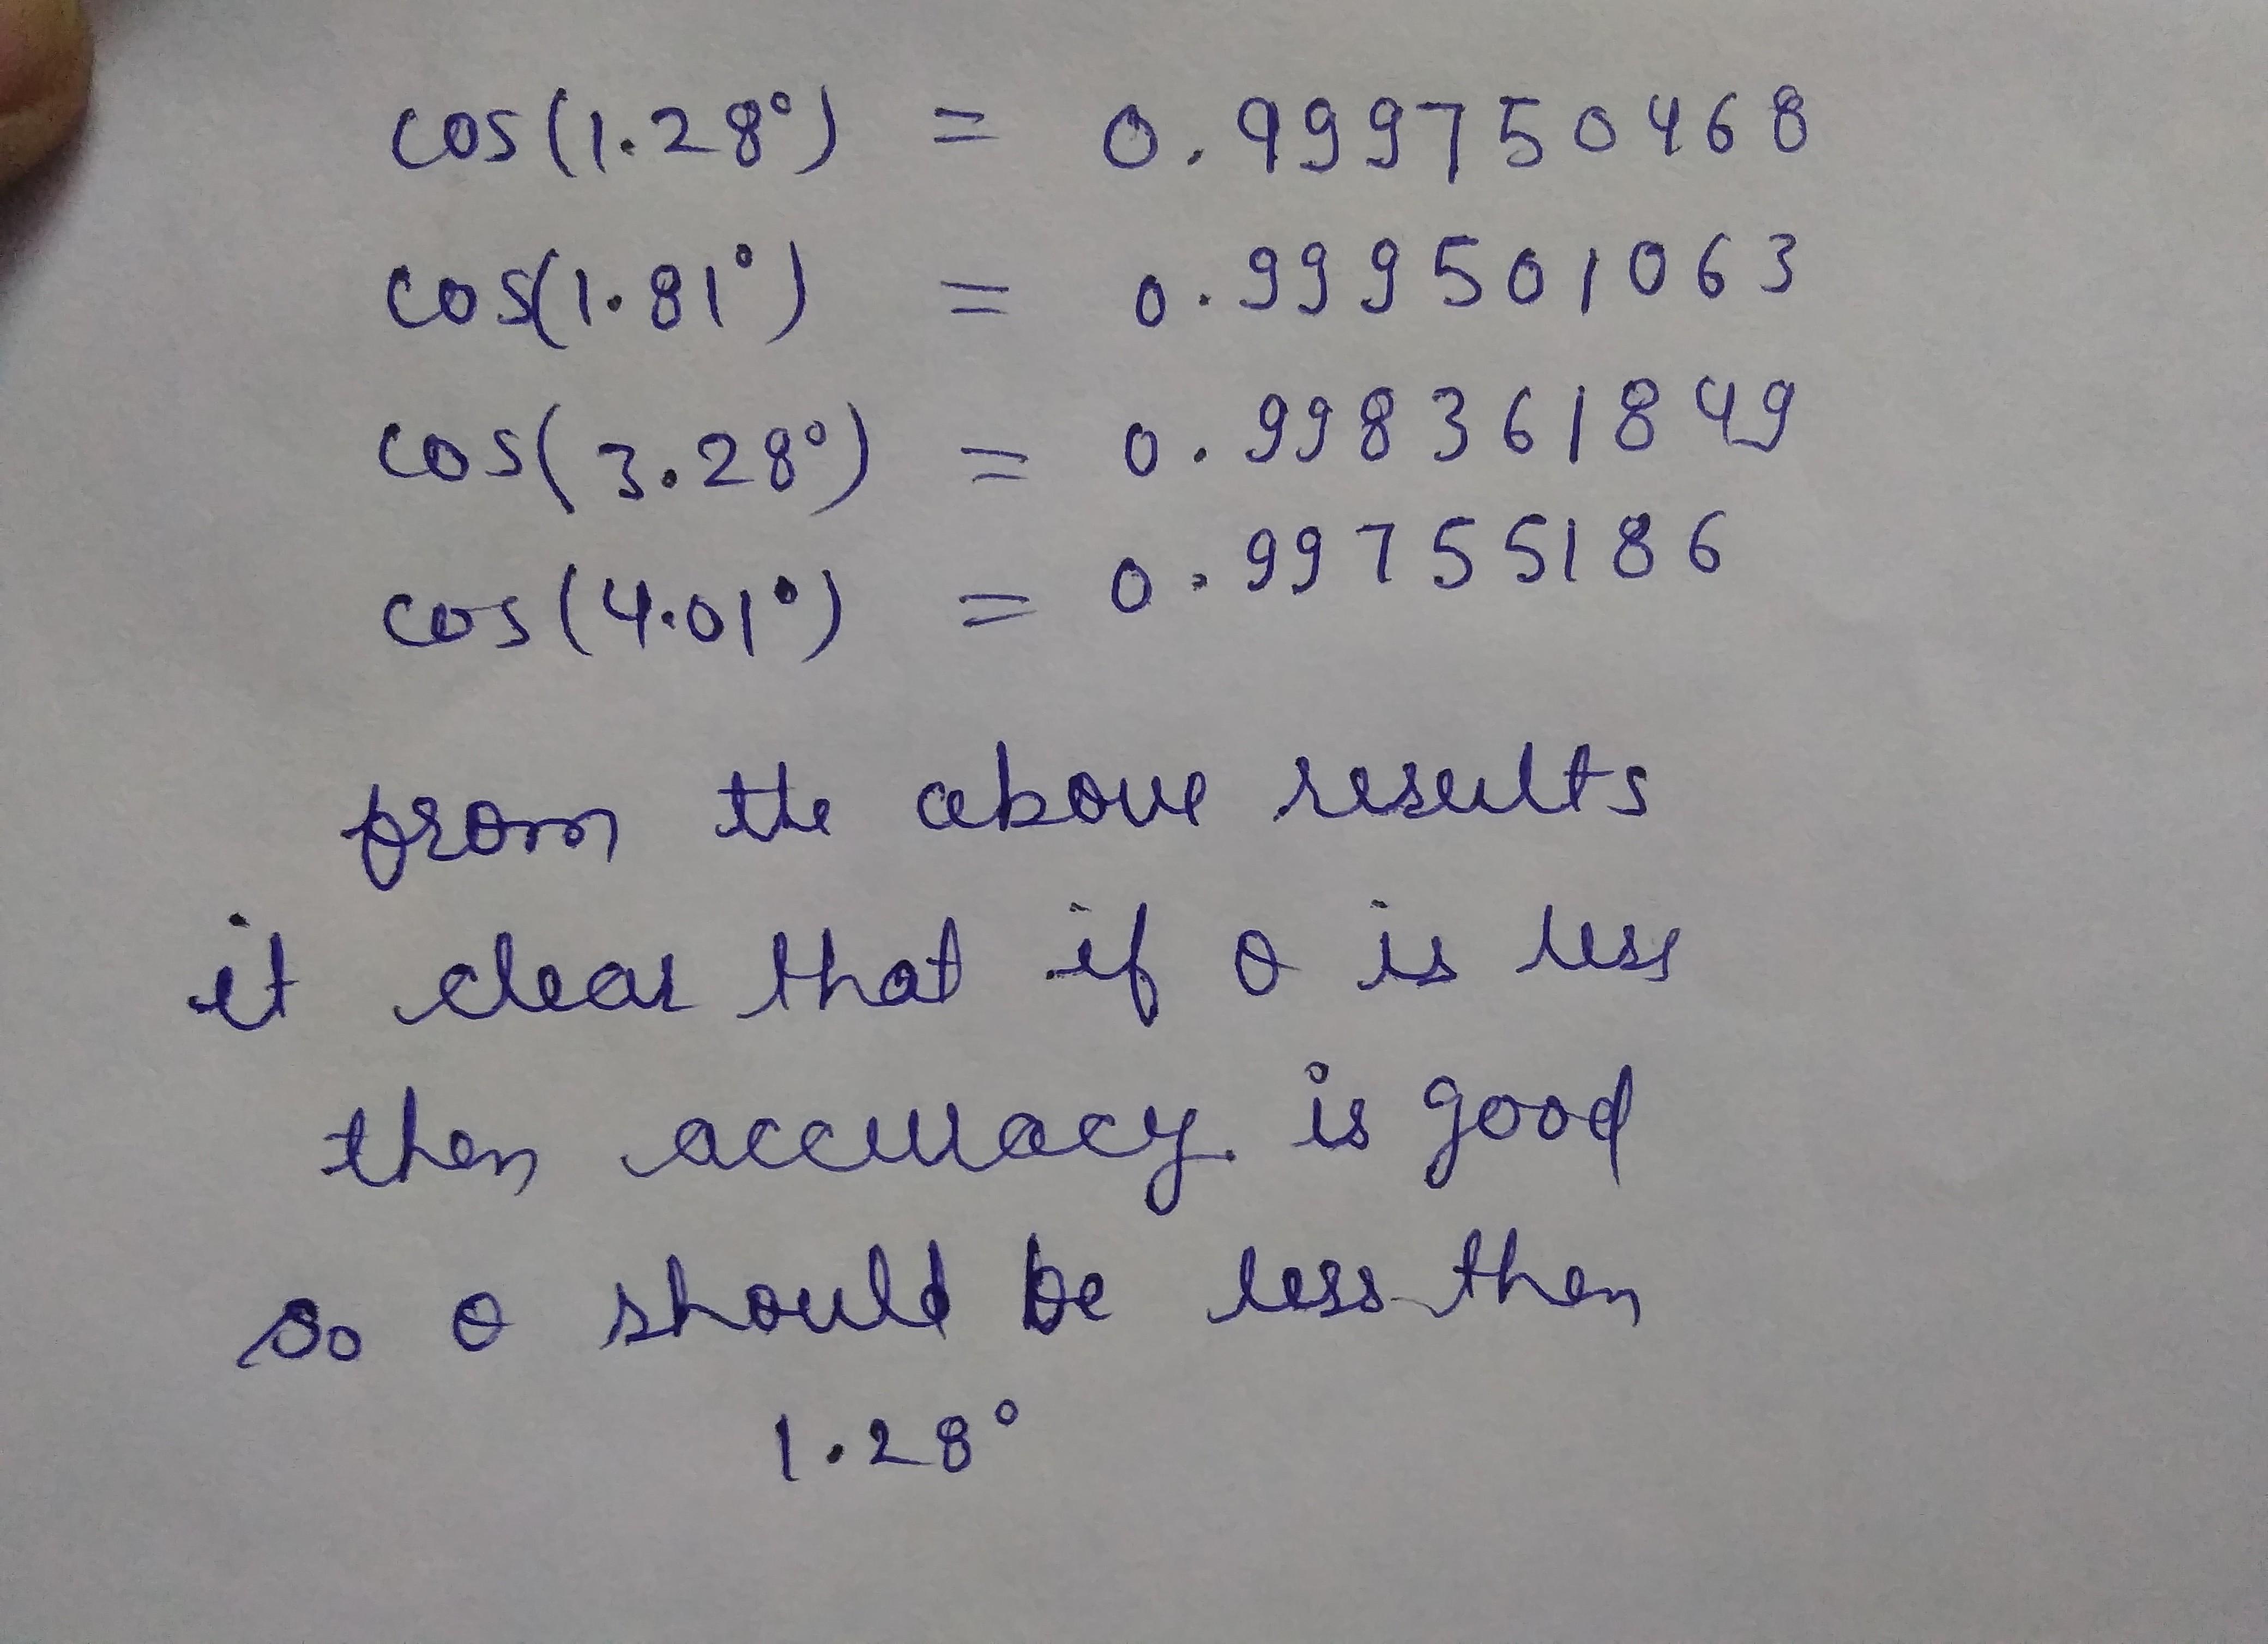 cos(1.28°) = 0.999750468
cos(1.81°) = 0.999501063
cos(3.28°) = 0.998361849
cos(4.01°) = 0.99755186
from the above results
it clear that if θ is less
then accuracy is good
so θ should be less then
1.28°